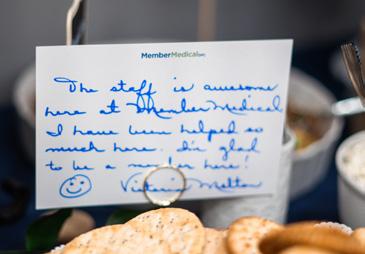 MemberMedical
The staff is awesome
here at MemberMedical
I have been helped so
much here. I'm glad
to be a member here!
Victoria Melton